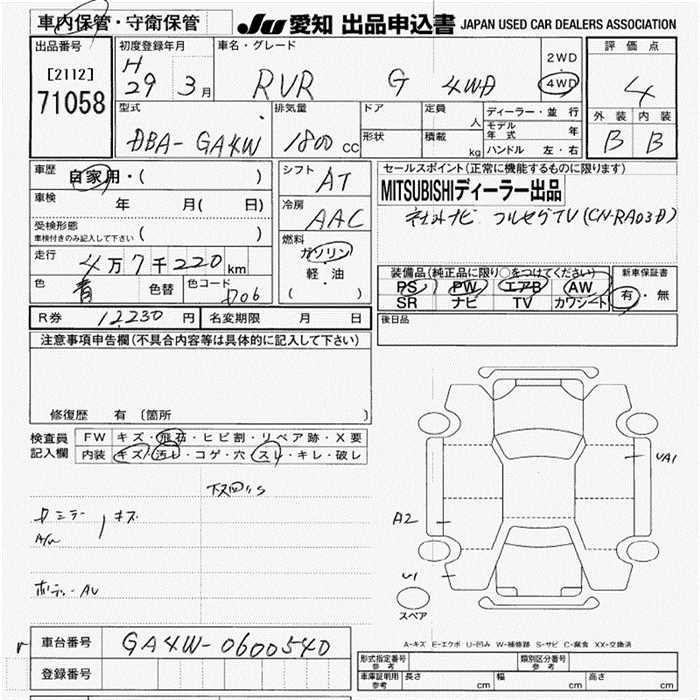 車内保管・守衛保管
JU 愛知 出品申込書 JAPAN USED CAR DEALERS ASSOCIATION
出品番号
[2112]
71058
初度登録年月
H 29 3月
車名・グレード
RVR G 4WD
2WD
・
4WD
評価点
4
型式
DBA-GA4W
排気量
1800 cc
ドア
形状
定員
人
積載
kg
ディーラー・並行
モデル年式 年
ハンドル 左・右
外装 内装
B B
車歴
自家用・( )
車検
年 月( 日)
受検形態
車検付きのみ記入して下さい ( )
走行
4万7千220km
色
青
色替
色コード
D06
シフト
AT
冷房
AAC
燃料
ガソリン
・
軽・油
( )
セールスポイント(正常に機能するものに限ります)
MITSUBISHIディーラー出品
社外ナビ フルセグTV (CN-RA03D)
装備品(純正品に限り○をつけてください)
PS PW エアB AW
SR ナビ TV カワシート
新車保証書
有・無
R券 12,230 円 名変期限 月 日
後日品
注意事項申告欄(不具合内容等は具体的に記入して下さい)
修復歴 有 〔箇所 〕
検査員
記入欄
FW キズ・飛石・ヒビ割・リペア跡・X要
内装 キズ・汚レ・コゲ・穴・スレ・キレ・破レ
下回りS
ミラー
A/W
キズ
ボディーAU
UA1
A2
U1
スペア
A-キズ E-エクボ U-凹み W-補修跡 S-サビ C-腐食 XX-交換済
車台番号 GA4W-0600540
登録番号
形式指定番号
参考
類別区分番号
参考
車庫証明用
参考
長さ cm 幅 cm 高さ cm